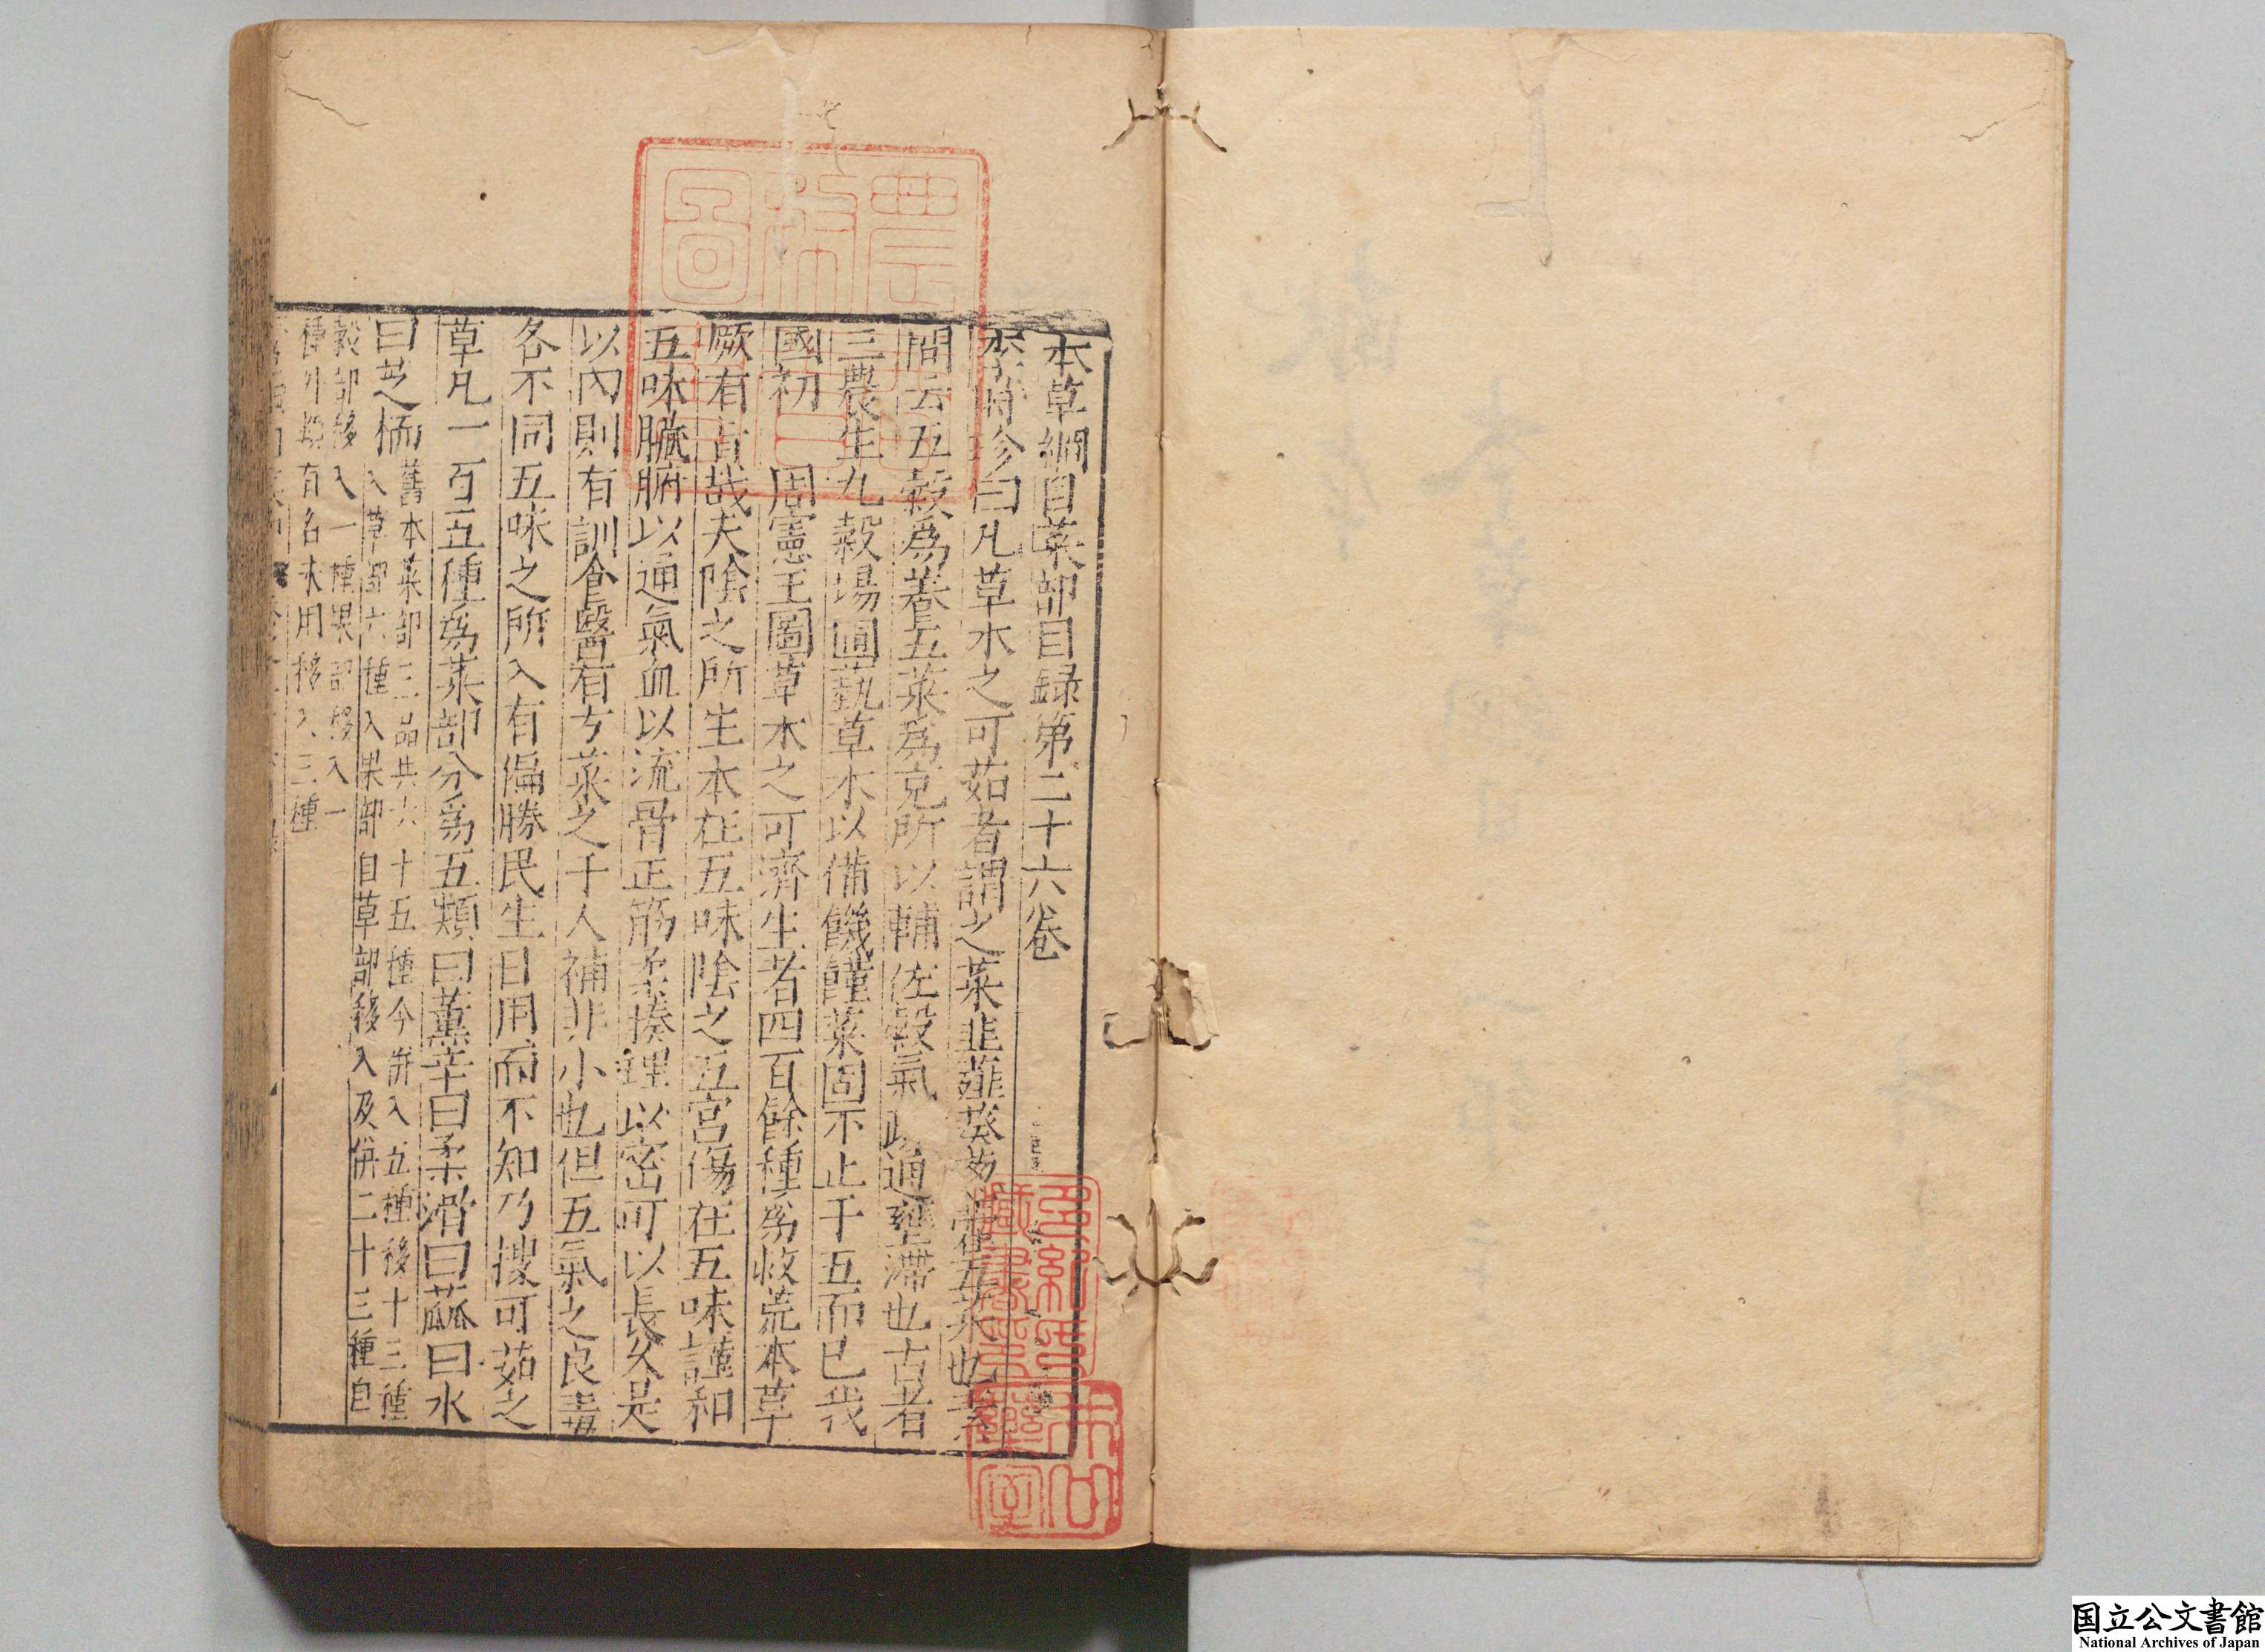 本草綱目菜部目録第二十六卷
李時珍曰凡草木之可茹者謂之菜韭薤葵葱藿五菜也素
問云五穀爲養五菜爲充所以輔佐穀氣疏通壅滯也古者
三農生九穀場圃藝草木以備饑饉菜固不止于五而已我
國初　周憲王圖草木之可濟生者四百餘種爲救荒本草
厥有旨哉夫陰之所生本在五味陰之五宮傷在五味謹和
五味臟腑以通氣血以流骨正筋柔揍理以密可以長久是
以內則有訓食醫有方菜之于人補非小也但五氣之良毒
各不同五味之所入有偏勝民生日用而不知乃搜可茹之
草凡一百五種爲菜部分爲五類曰薰辛曰柔滑曰蓏曰水
曰芝栭舊本菜部三品共六十五種今併入五種移十三種
入草部六種入果部自草部移入及併二十三種自
穀部移入一種果部移入一
種外類有名未用移入三種
農商務
圖書
国立公文書館
National Archives of Japan